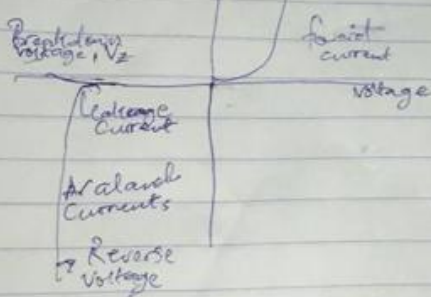 Breakdown
voltage, Vz
current
voltage
Leakage
Current
Avalanch
Currents
Reverse
voltage